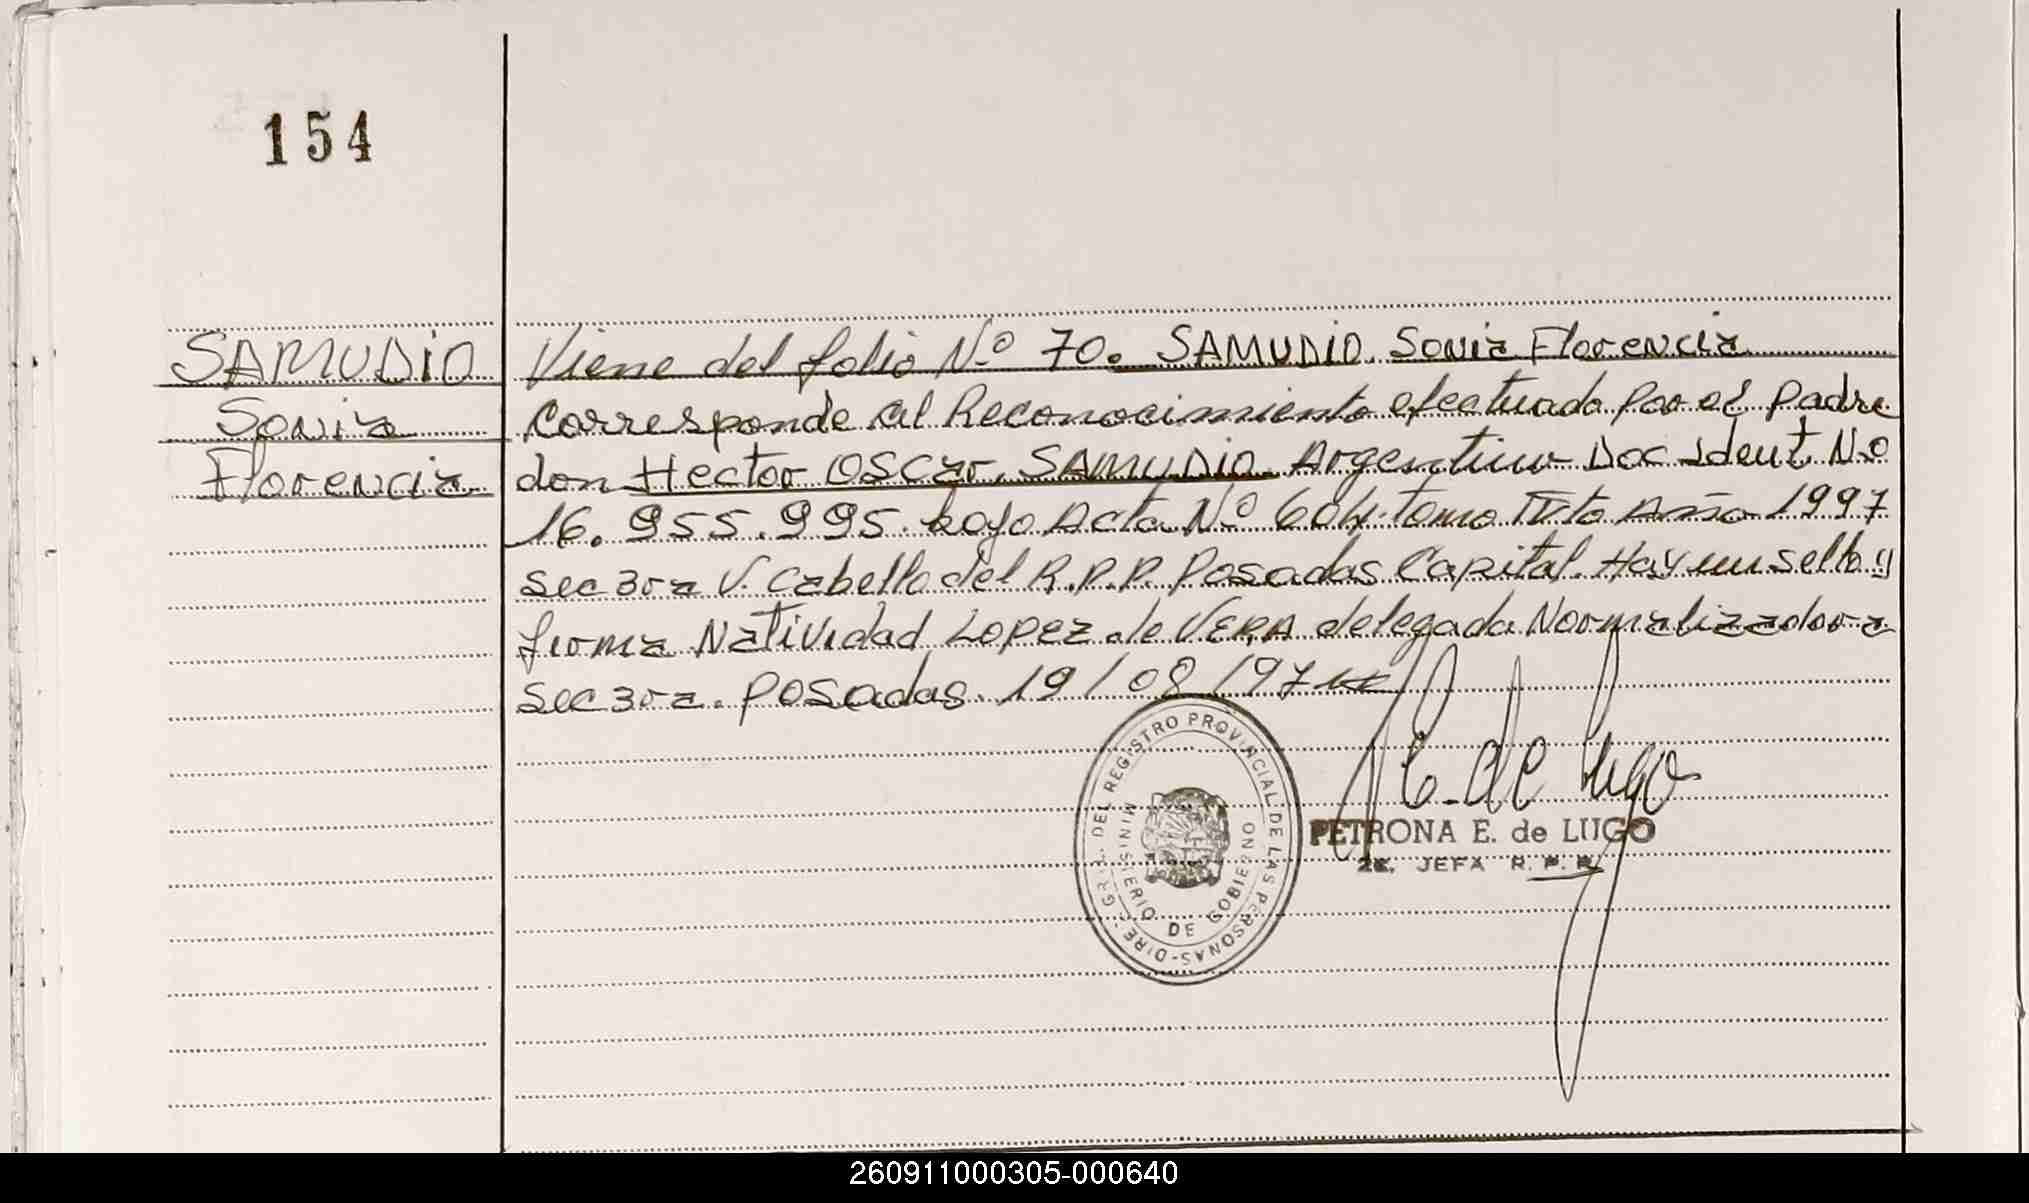 154
SAMUDIO
Sonia
Florencia
Viene del folio N.º 70. SAMUDIO Sonia Florencia
Corresponde al Reconocimiento efectuado por el padre
don Hector Oscar SAMUDIO Argentino Doc Ident. N.º
16.955.995 bajo Acta N.º 604 tomo IV to Año 1997
sec 3ra V. Cabello del R.P.P. Posadas Capital. Hay un sello y
firma Natividad Lopez de VERA delegada Normalizadora
sec 3ra. Posadas. 19/08/97
E. de Lugo
PETRONA E. de LUGO
JEFA R. P. P.
DIREC. GRAL. DEL REGISTRO PROVINCIAL DE LAS PERSONAS-
MINISTERIO DE GOBIERNO
260911000305-000640